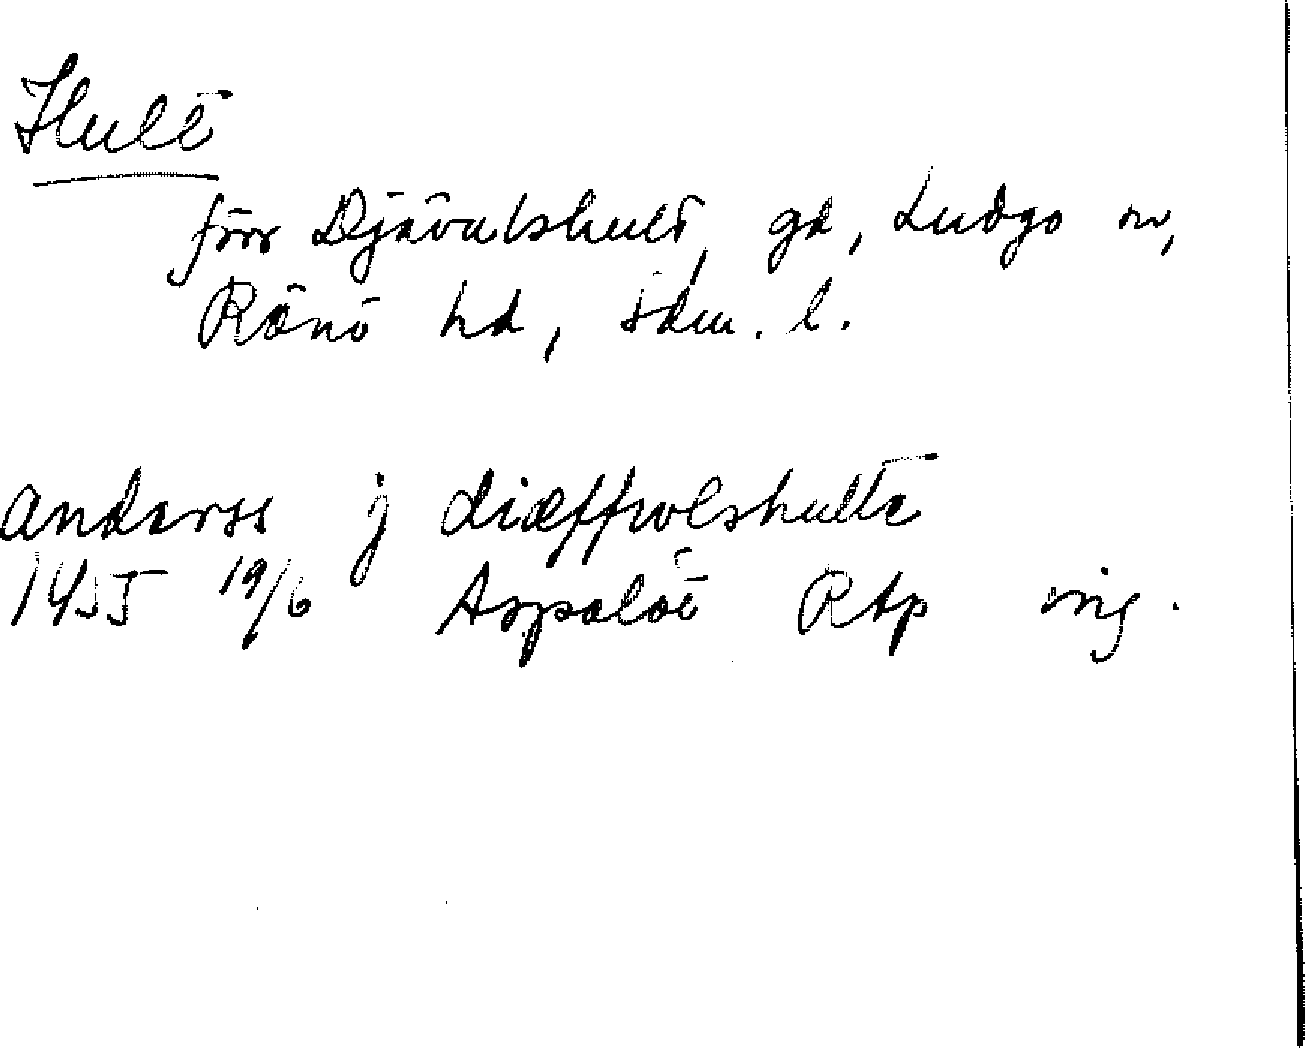 Hult
förr Djävulshult, gd, Ludgo sn,
Rönö hd, Sdm. l.
Anderss j diæffwlshulte
1455 19/6 Aspaløt RAp orig.